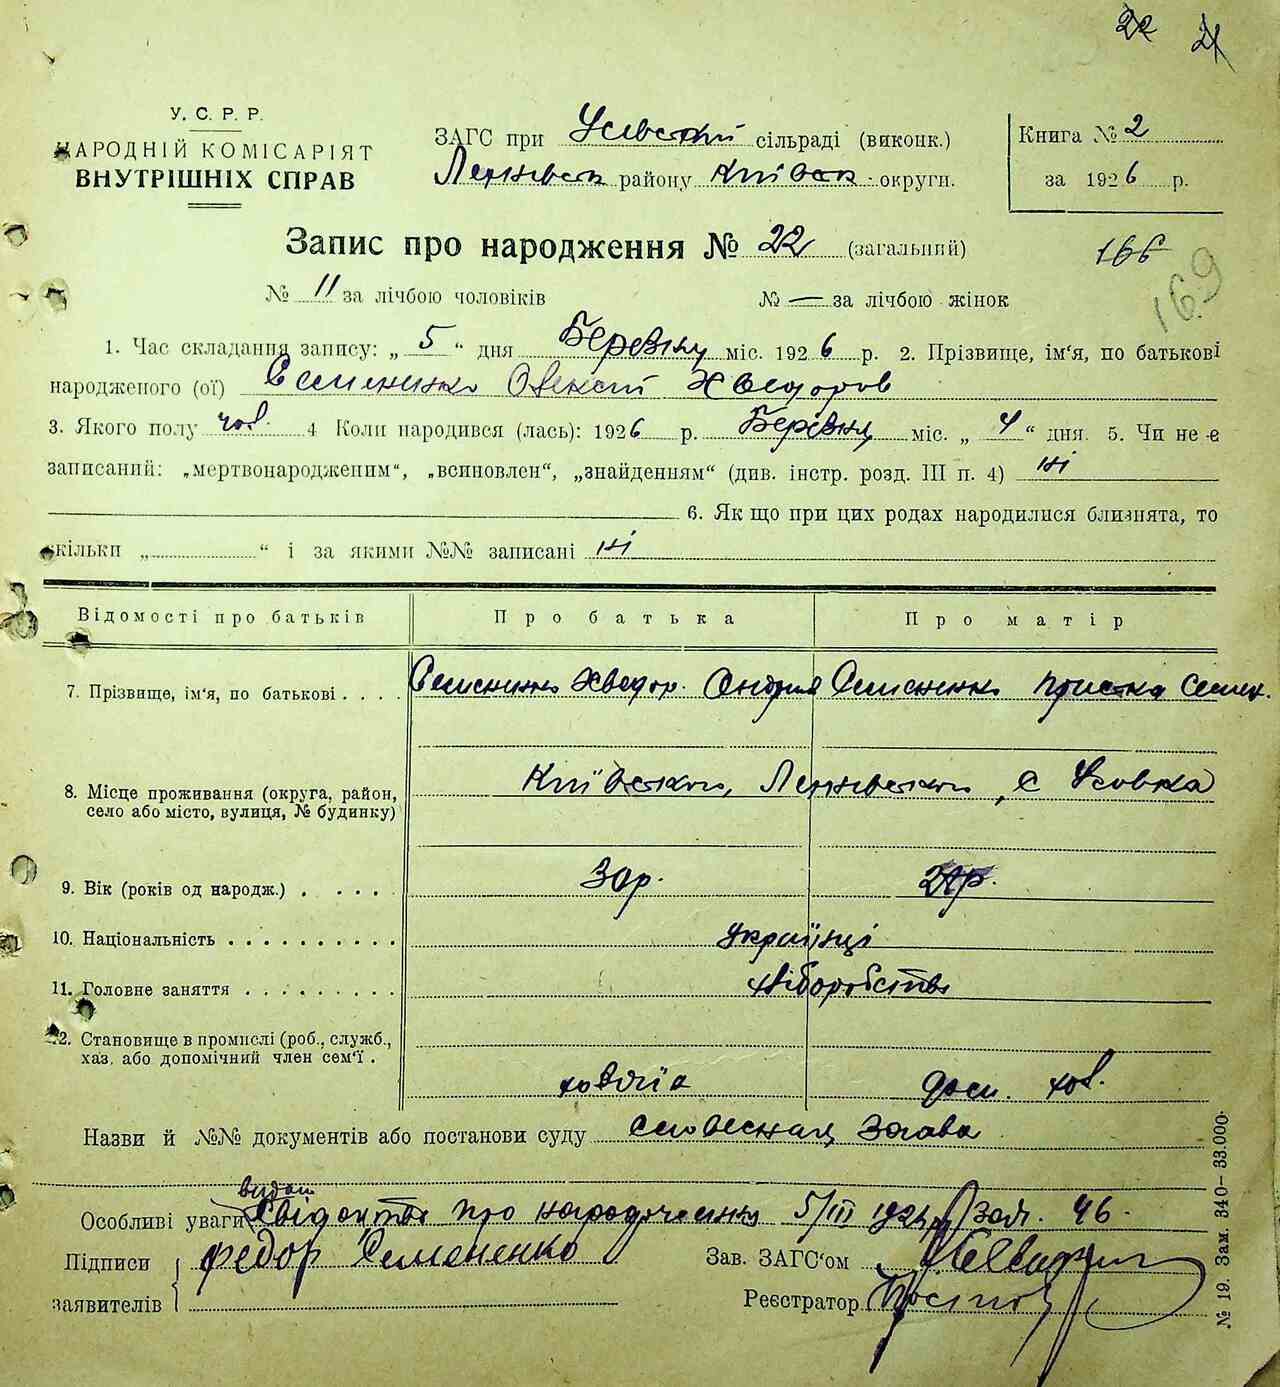 22 21
У. С. Р. Р.
НАРОДНІЙ КОМІСАРІЯТ
ВНУТРІШНІХ СПРАВ
ЗАГС при Усівській сільраді (виконк.)
району Київськ округи.
Книга № 2
за 1926 р.
Запис про народження № 22 (загальний)
166
169
№ 11 за лічбою чоловіків № — за лічбою жінок
1. Час складання запису: „ 5 “ дня Березня міс. 1926 р. 2. Прізвище, ім'я, по батькові
народженого (ої) Семененко Олексій Хведоров
3. Якого полу чол. 4 Коли народився (лась): 1926 р. Березня міс. „ 4 “ дня. 5. Чи не є
записаний: „мертвонародженим“, „всиновлен“, „знайденням“ (див. інстр. розд. III п. 4) ні
6. Як що при цих родах народилися близнята, то
скільки „ “ і за якими №№ записані ні
Відомості про батьків Про батька Про матір
7. Прізвище, ім'я, по батькові . . . . Семененко Хведор Андріїв Семененко Пристка Семен.
8. Місце проживання (округа, район,
село або місто, вулиця, № будинку)
Київської, с Усовка
9. Вік (років од народж.) . . . . . 30р.
10. Національність . . . . . . . . . . українці
11. Головне заняття . . . . . . . . . хліборобство
12. Становище в промислі (роб., служб.,
хаз. або допомічний член сем'ї .
хозяїн
Назви й №№ документів або постанови суду словесная заява
видано
Особливі уваги Свідоцтво про народження 5/III 46.
Підписи
заявителів
Федор Семененко
Зав. ЗАГС'ом
Реєстратор
№ 19. Зам. 340–33.000.